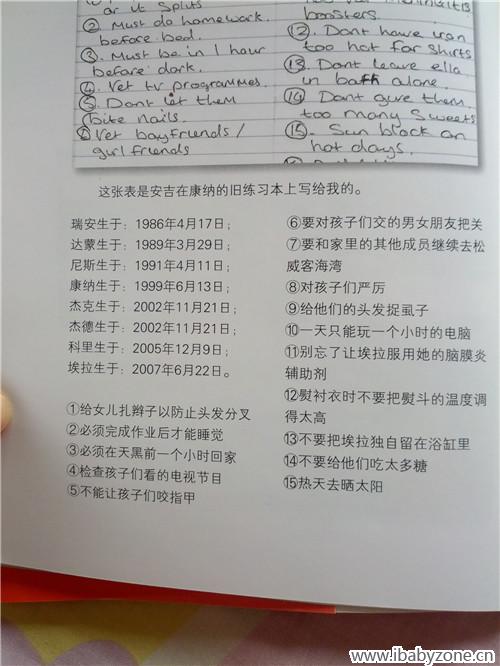 or it splits
② Must do homework
before bed.
③ Must be in 1 hour
before dark.
④. Vet tv programmes.
⑤. Dont let them
bite nails.
⑥ Vet boyfriends/
girlfriends
boosters.
⑫. Dont have iron
too hot for shirts
⑬. Dont leave ella
in bath alone.
⑭ Dont give them
too many sweets
⑮. Sun block on
hot days.
这张表是安吉在康纳的旧练习本上写给我的。
瑞安生于：1986年4月17日；
达蒙生于：1989年3月29日；
尼斯生于：1991年4月11日；
康纳生于：1999年6月13日；
杰克生于：2002年11月21日；
杰德生于：2002年11月21日；
科里生于：2005年12月9日；
埃拉生于：2007年6月22日。
①给女儿扎辫子以防止头发分叉
②必须完成作业后才能睡觉
③必须在天黑前一个小时回家
④检查孩子们看的电视节目
⑤不能让孩子们咬指甲
⑥要对孩子们交的男女朋友把关
⑦要和家里的其他成员继续去松
威客海湾
⑧对孩子们严厉
⑨给他们的头发捉虱子
⑩一天只能玩一个小时的电脑
⑪别忘了让埃拉服用她的脑膜炎
辅助剂
⑫熨衬衣时不要把熨斗的温度调
得太高
⑬不要把埃拉独自留在浴缸里
⑭不要给他们吃太多糖
⑮热天去晒太阳
www.ibabyzone.cn